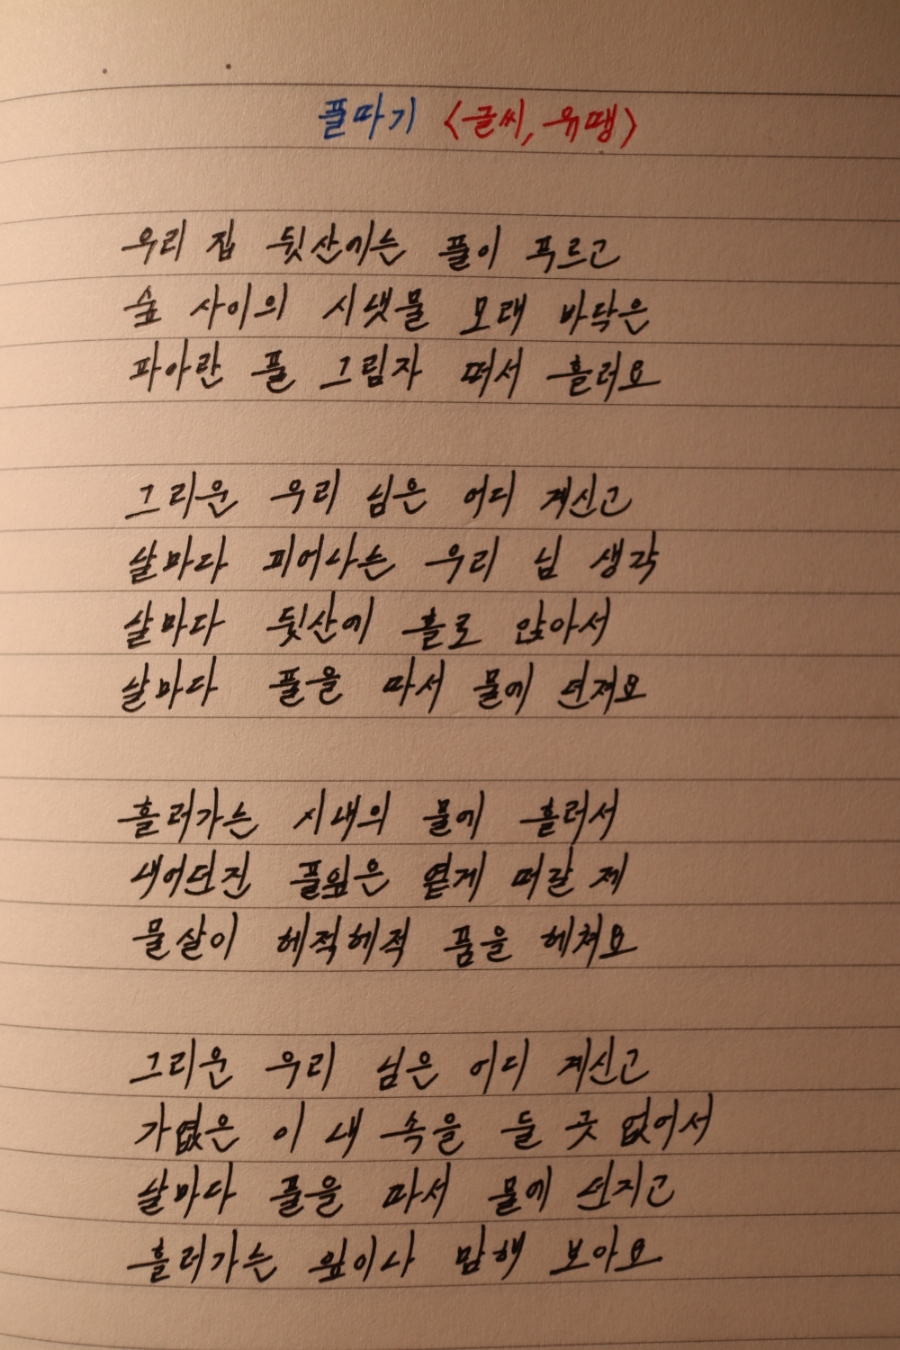 풀따기 <글씨, 유땡>
우리 집 뒷산에는 풀이 푸르고
숲 사이의 시냇물 모래 바닥은
파아란 풀 그림자 떠서 흘러요
그리운 우리 님은 어디 계신고
날마다 피어나는 우리 님 생각
날마다 뒷산에 홀로 앉아서
날마다 풀을 따서 물에 던져요
흘러가는 시내의 물에 흘러서
내어던진 풀잎은 옅게 떠갈 제
물살이 헤적헤적 품을 헤쳐요
그리운 우리 님은 어디 계신고
가엾은 이 내 속을 둘 곳 없어서
날마다 풀을 따서 물에 던지고
흘러가는 잎이나 맘해 보아요